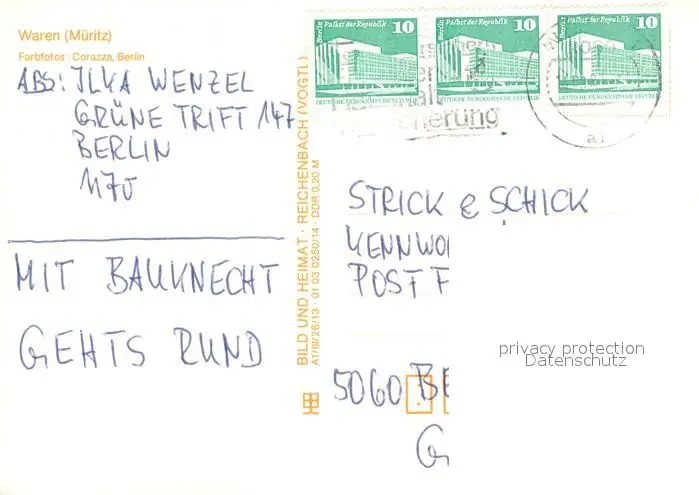 Waren (Müritz)
Farbfotos Corazza, Berlin
ABS: ILKA WENZEL
GRÜNE TRIFT 147
BERLIN
1170
MIT BAUKNECHT
GEHTS RUND
BILD UND HEIMAT · REICHENBACH (VOGTL)
A1/III/26/13 · 01 03 0250/14 · DDR 0,20 M
Berlin Palast der Republik 10
DEUTSCHE DEMOKRATISCHE REPUBLIK
Berlin Palast der Republik 10
DEUTSCHE DEMOKRATISCHE REPUBLIK
Berlin Palast der Republik 10
DEUTSCHE DEMOKRATISCHE REPUBLIK
cherung
a
STRICK & SCHICK
KENNWO
POST F
privacy protection
Datenschutz
5060 BE
G